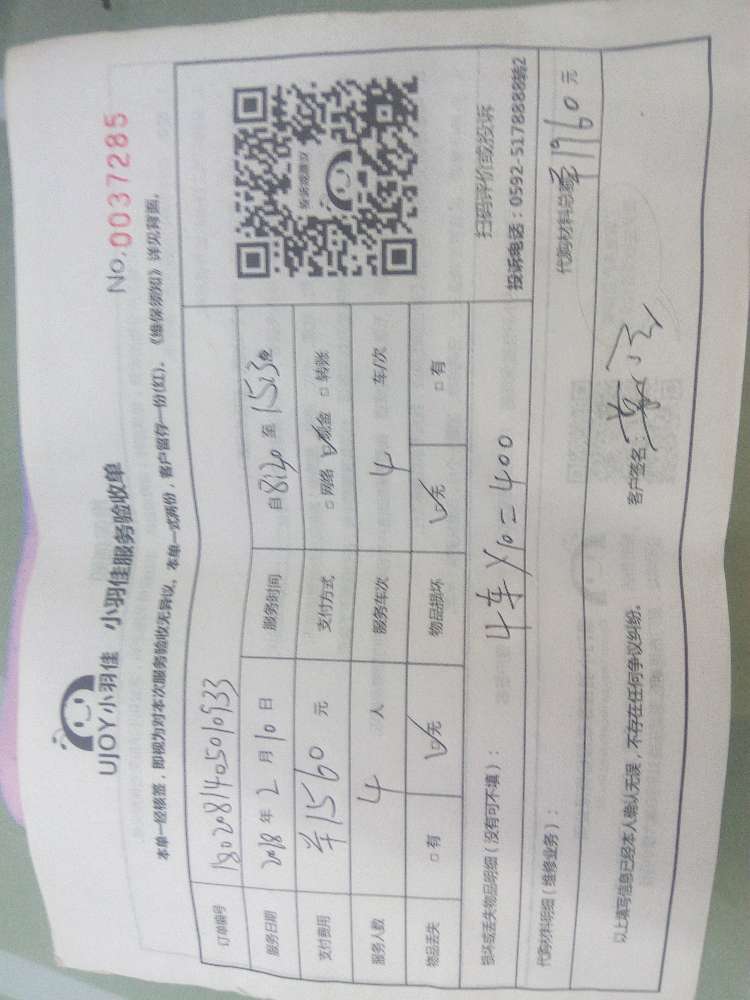 UJOY小羽佳 小羽佳服务验收单
No.0037285
本单一经核签，即视为对本次服务验收无异议。本单一式两份，客户留存一份(红)。《维保须知》详见背面。
订单编号 1802081405010933
服务日期 2018 年 2 月 10 日 服务时间 自 8:20 至 15:23
支付费用 ￥1560 元 支付方式 □ 网络 ☑ 现金 □ 转账
服务人数 4 人 服务车次 4 车/次
物品丢失 □ 有 ☑ 无 物品损坏 ☑ 无 □ 有
扫码评价或投诉
投诉电话：0592-5178888转2
损坏或丢失物品明细（没有可不填）：
4车 =400
代购材料明细（维修业务）：
代购材料总额 ￥1960 元
以上填写信息已经本人确认无误，不存在任何争议纠纷。
客户签名：